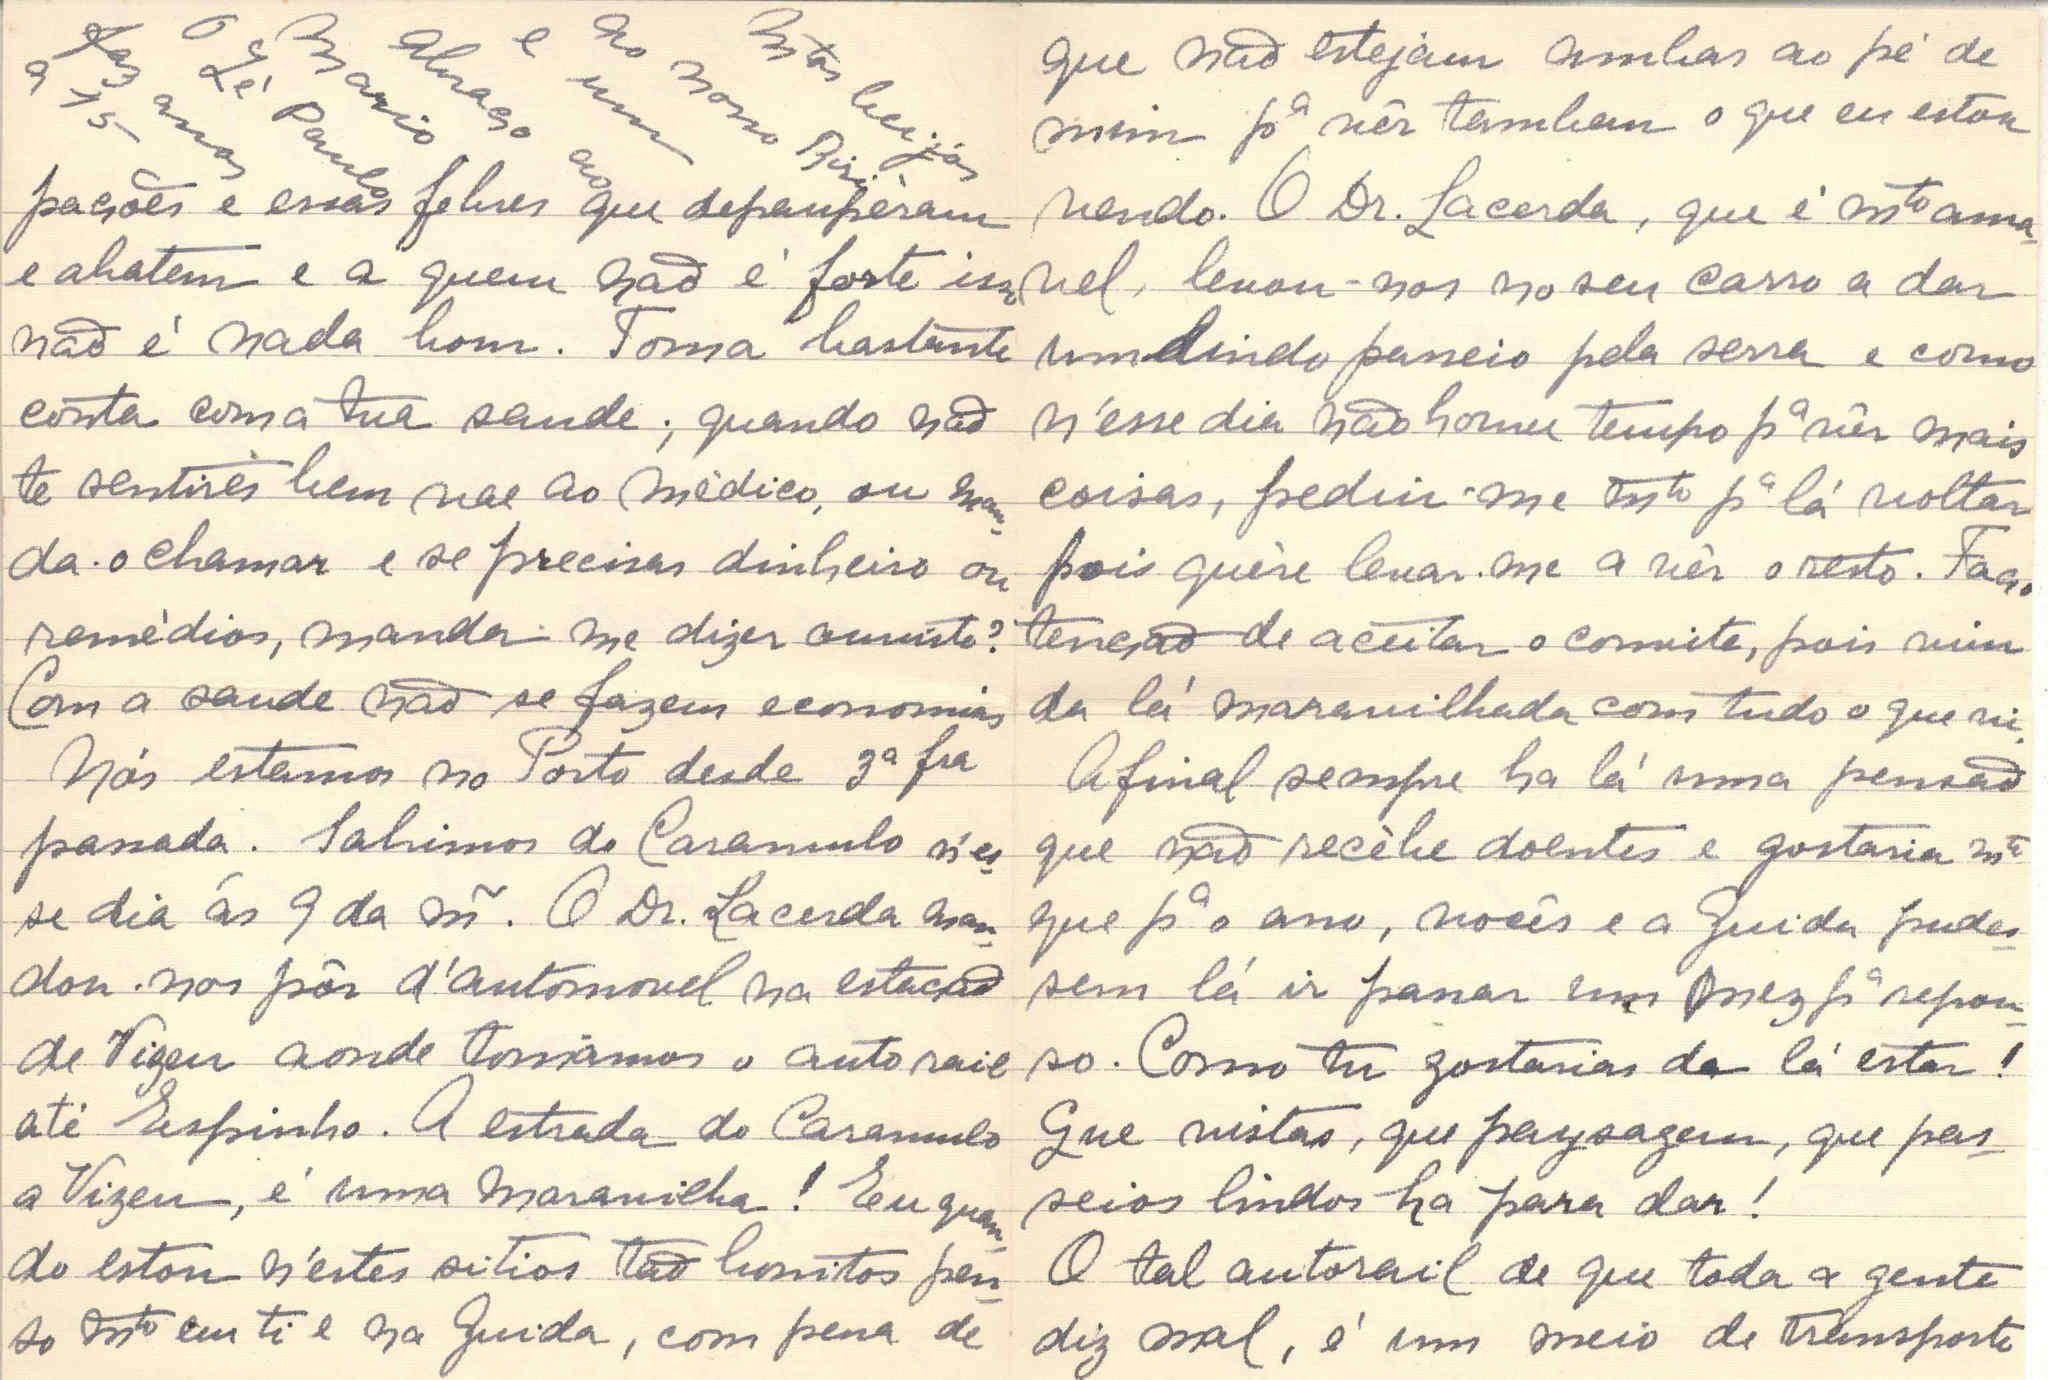 Mtos beijos
ao nosso Riri
e um
abraço ao
Mario
O Zé Paulo
faz anos
a 15
pações e essas febres que depaupéram
e abatem e a quem não é forte isso
não é nada bom. Toma bastante
conta com a tua saude; quando não
te sentires bem vae ao médico, ou man-
da-o chamar e se precisas dinheiro ou
remédios, manda-me dizer ouviste?
Com a saude não se fazem economias
Nós estamos no Porto desde 3ª fra
passada. Sahimos do Caramulo n'es-
se dia ás 9 da mñ. O Dr. Lacerda man-
dou-nos pôr d'automovel na estação
de Vizeu aonde tomámos o autorail
até Espinho. A estrada do Caramulo
a Vizeu, é uma maravilha! Eu quan-
do estou n'estes sitios tão bonitos pen-
so mto em ti e na Guida, com pena de
que não estejam ambas ao pé de
mim pª vêr tambem o que eu estou
vendo. O Dr. Lacerda, que é mto ama-
vel, levou-nos no seu carro a dar
um lindo passeio pela serra e como
n'esse dia não houve tempo pª vêr mais
coisas, pediu-me mto pª lá voltar
pois quére levar-me a vêr o resto. Faço
tenção de aceitar o convite, pois vim
da lá maravilhada com tudo o que vi.
Afinal sempre ha lá uma pensão
que não recébe doentes e gostaria mto
que pª o ano, vocês e a Guida pudes-
sem lá ir passar um mez pª repou-
so. Como tu gostarias da lá estar!
Que vistas, que paysagem, que pas-
seios lindos ha para dar!
O tal autorail de que toda a gente
diz mal, é um meio de transporte